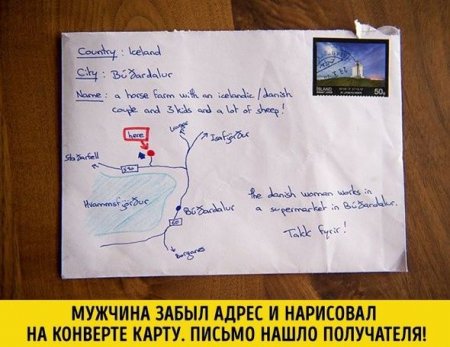 Country : Iceland
City : Búðardalur
Name : a horse farm with an icelandic/danish
couple and 3 kids and a lot of sheep!
here
Isafjörður
Staðarfell
590
Hvammsfjörður
Búðardalur
60
Borganes
the danish woman works in
a supermarket in Búðardalur.
Takk fyrir!
ÍSLAND
50g
МУЖЧИНА ЗАБЫЛ АДРЕС И НАРИСОВАЛ
НА КОНВЕРТЕ КАРТУ. ПИСЬМО НАШЛО ПОЛУЧАТЕЛЯ!